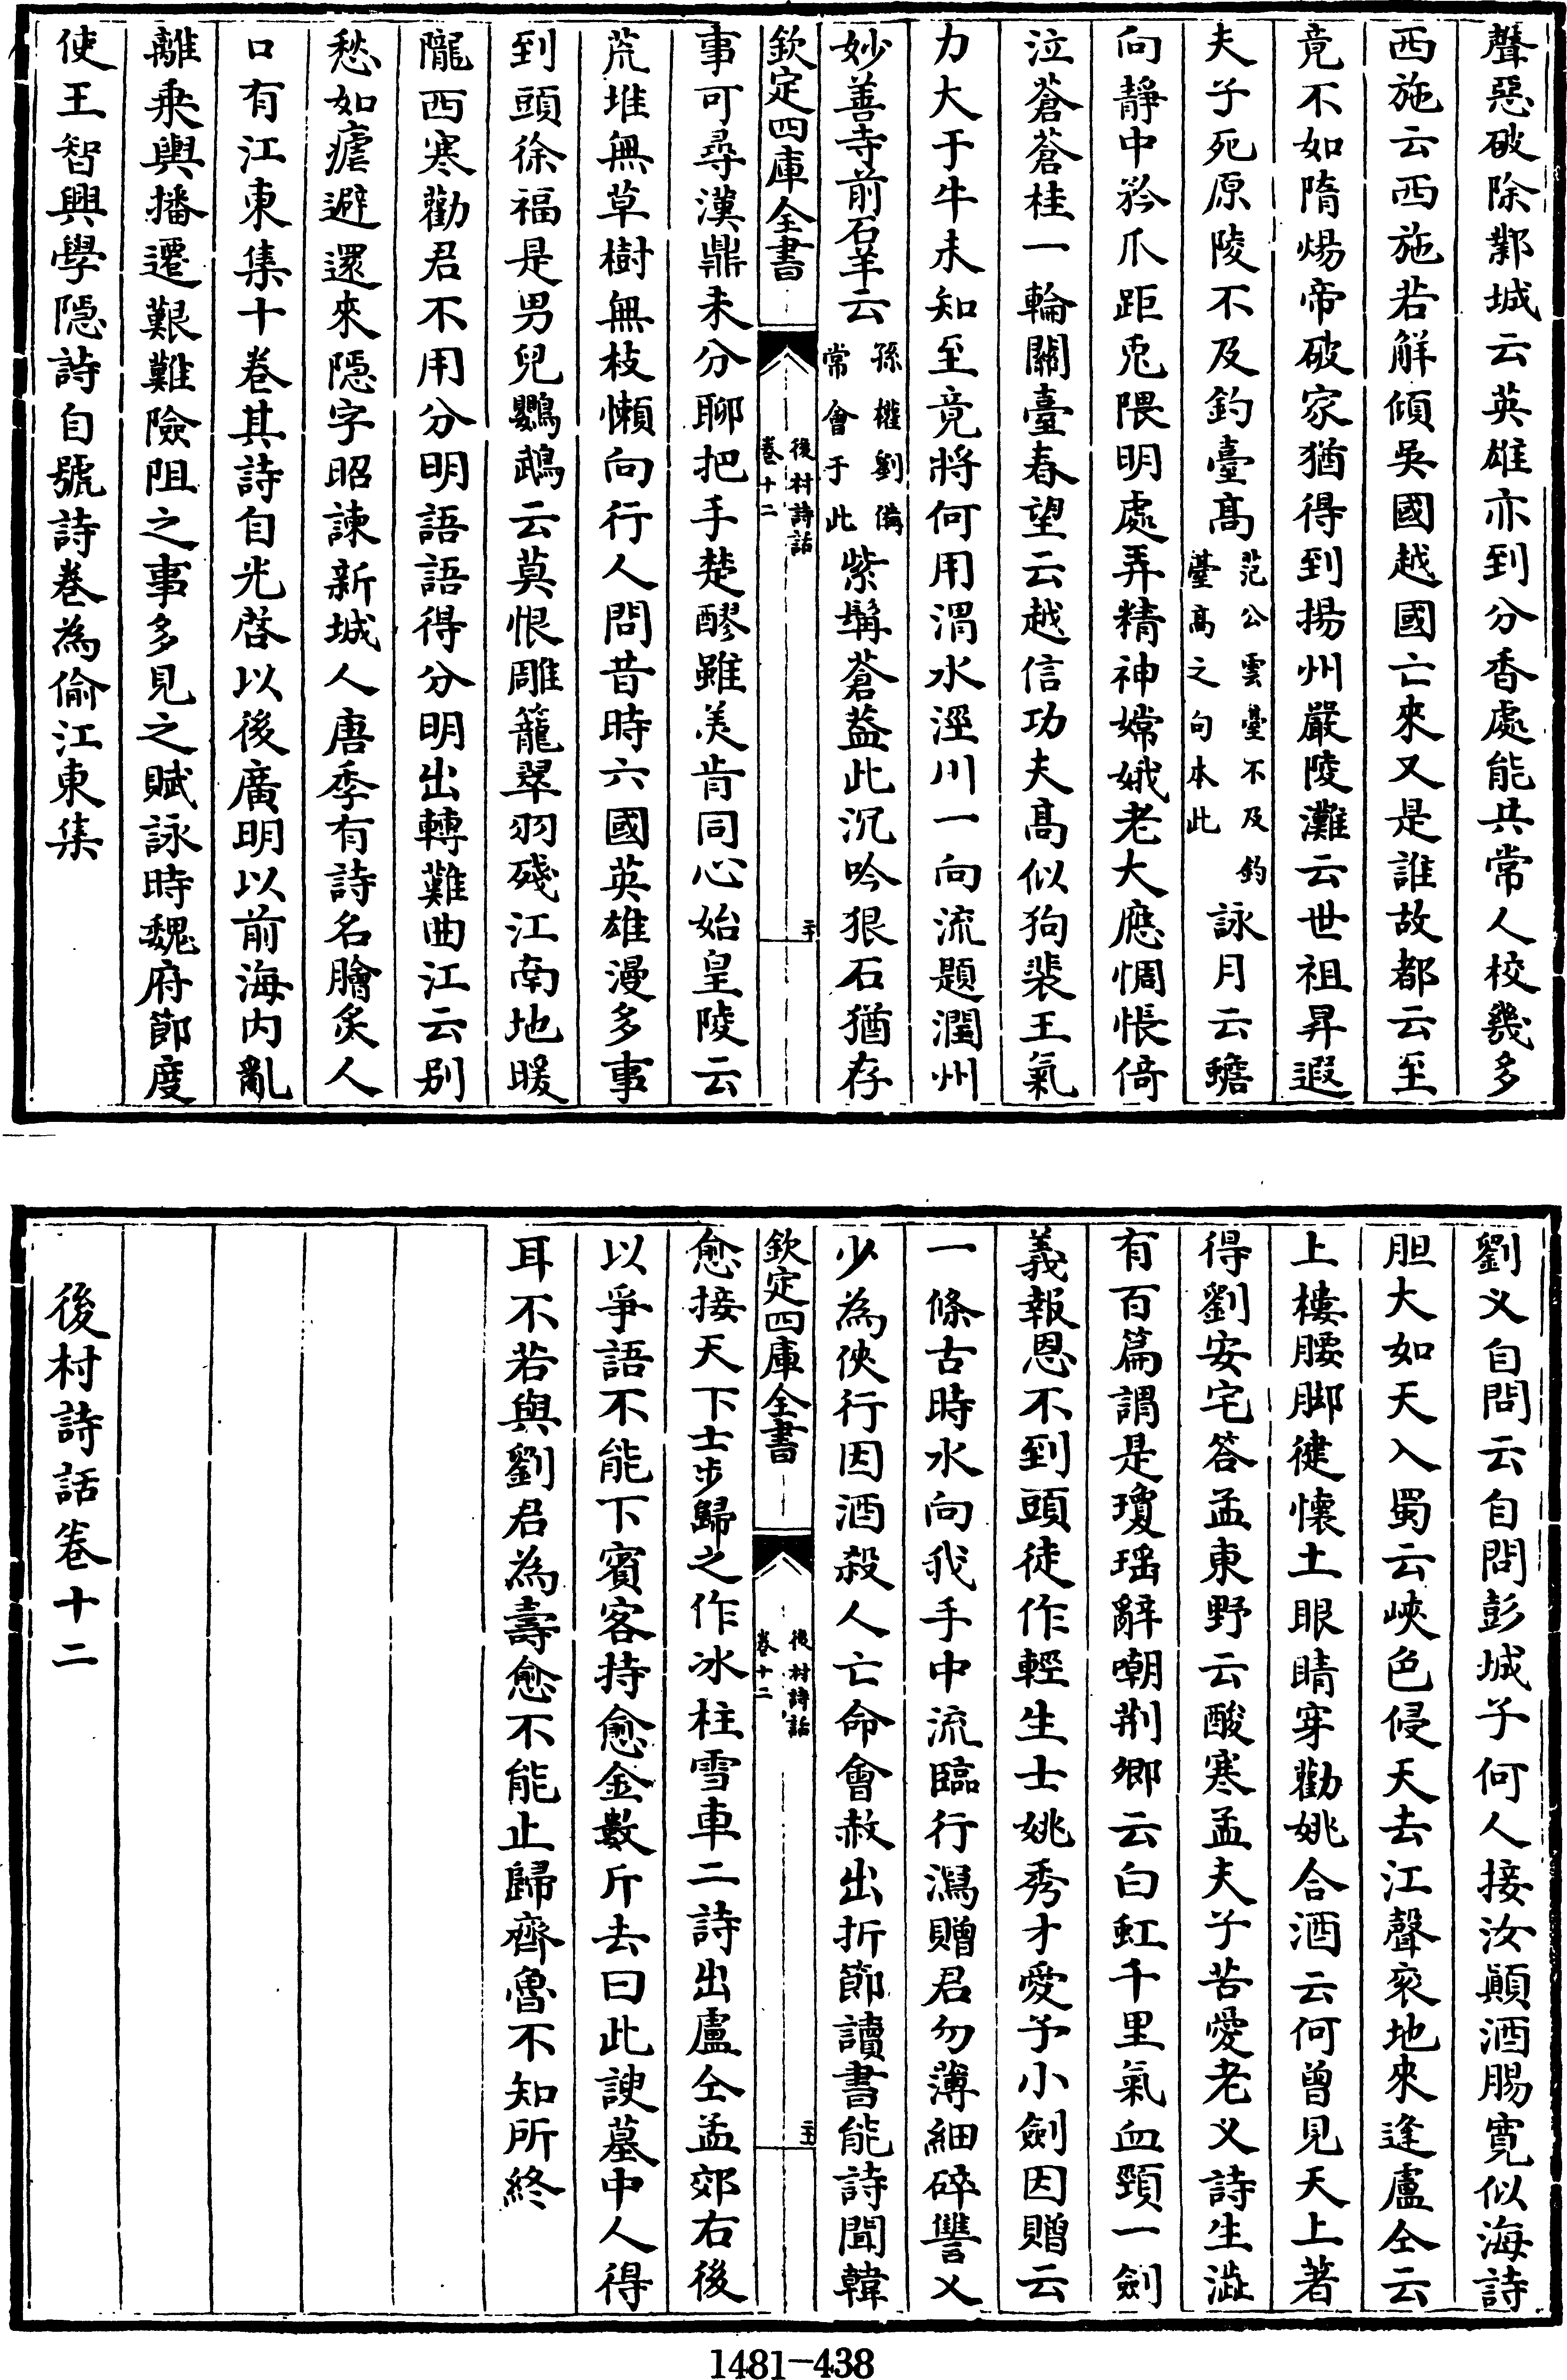 聲惡破除鄴城云英雄亦到分香處能共常人校幾多
西施云西施若解傾吳國越國亡來又是誰故都云至
竟不如隋煬帝破家猶得到揚州嚴陵灘云世祖昇遐
夫子死原陵不及釣臺髙范公雲臺不及釣臺髙之句本此詠月云蟾
向靜中矜爪距兎隈明處弄精神嫦娥老大應惆悵倚
泣蒼蒼桂一輪關臺春望云越信功夫髙似狗裴王氣
力大于牛未知至竟將何用渭水涇川一向流題潤州
妙善寺前石羊云孫權劉備常會于此紫髯蒼葢此沉吟狠石猶存
欽定四庫全書
後村詩話
卷十二
二十
事可尋漢鼎未分聊把手楚醪雖美肯同心始皇陵云
荒堆無草樹無枝懶向行人問昔時六國英雄漫多事
到頭徐福是男兒鸚鵡云莫恨雕籠翠羽殘江南地暖
隴西寒勸君不用分明語語得分明出轉難曲江云别
愁如瘧避還來隱字昭諫新城人唐季有詩名膾炙人
口有江東集十卷其詩自光啓以後廣明以前海内亂
離乗輿播遷艱難險阻之事多見之賦詠時魏府節度
使王智興學隱詩自號詩卷為偷江東集
劉乂自問云自問彭城子何人接汝顚酒腸寛似海詩
胆大如天入蜀云峽色侵天去江聲衮地來逢盧仝云
上樓腰脚徤懷土眼睛穿勸姚合酒云何曾見天上著
得劉安宅答孟東野云酸寒孟夫子苦愛老乂詩生澁
有百篇謂是瓊瑶辭嘲荆卿云白虹千里氣血頸一劍
義報恩不到頭徒作輕生士姚秀才愛予小劍因贈云
一條古時水向我手中流臨行瀉贈君勿薄細碎讐乂
少為俠行因酒殺人亡命會赦出折節讀書能詩聞韓
欽定四庫全書
後村詩話
卷十二
二十一
愈接天下士步歸之作冰柱雪車二詩出盧仝孟郊右後
以爭語不能下賓客持愈金數斤去曰此諛墓中人得
耳不若與劉君為壽愈不能止歸齊魯不知所終
後村詩話卷十二
1481-438